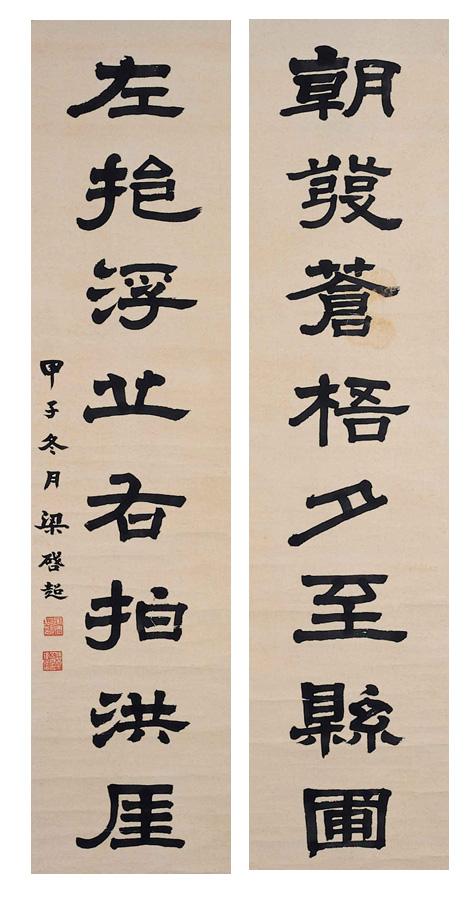 朝發蒼梧夕至縣圃
左挹浮丘右拍洪厓
甲子冬月梁啓超